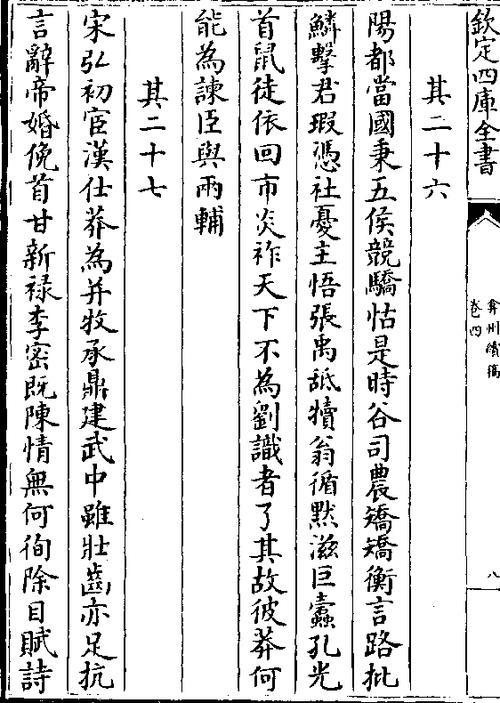 欽定四庫全書
弇州續稿
卷四
八
其二十六
陽都當國秉五侯競驕怙是時谷司農矯矯衡言路批
鱗擊君瑕憑社憂主悟張禹舐犢翁循默滋巨蠹孔光
首鼠徒依回市炎祚天下不為劉識者了其故彼莽何
能為諫臣與兩輔
其二十七
宋弘初宦漢仕莽為并牧承鼎建武中雖壯齒亦足抗
言辭帝婚俛首甘新祿李密既陳情無何徇除目賦詩